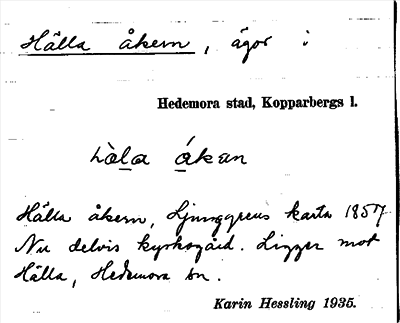 Hälla åkern, ägor i
Hedemora stad, Kopparbergs l.
hòla ákan
Hälla åkern, Ljunggrens karta 1857
Nu delvis kyrkogård. Ligger mot
Hälla, Hedemora sn.
Karin Hessling 1935.